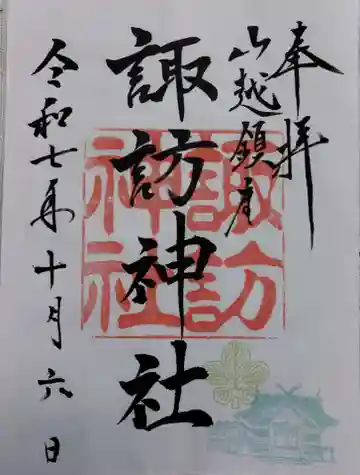 奉拝
山越鎮座
諏訪神社
令和七年十月六日
諏訪
神社